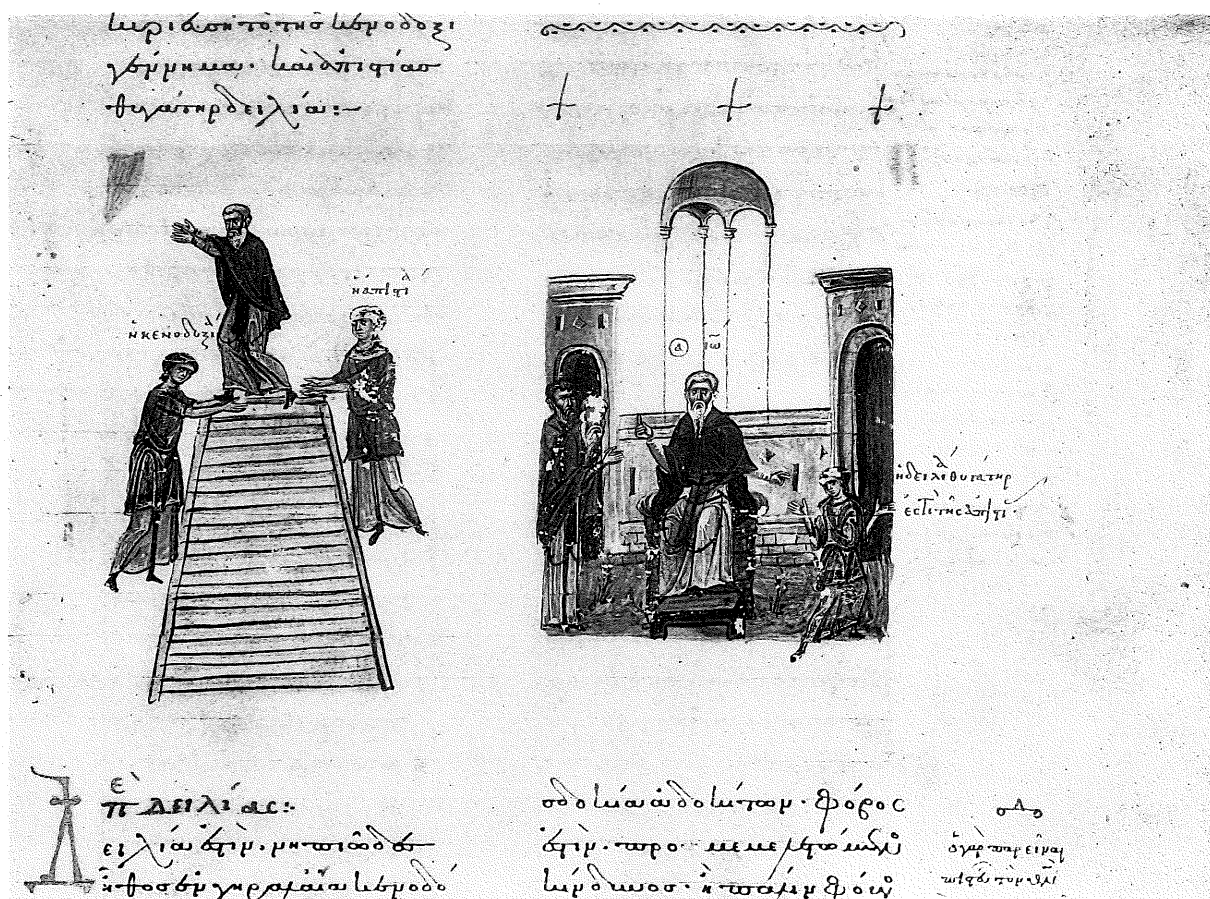 τὸ τῆς κενοδοξι
γέννημα· καὶ ἀπιστίας
θυγάτηρ δειλία:
ἡ ἀπιστία
ἡ κενοδοξία
ἰω
ἡ δειλία θυγάτηρ
ἐστὶ τῆς ἀπιστι
δειλίας:
Δειλία ἐστὶν. νηπιῶδες
ἦθος ἐν γηραλαία κενοδό
σδοκία ἀδοκήτων. φόβος
ἐστὶν. προμεμελετώμενος
κίνδυνος. ἢ πάλιν φόβος
ὁ γὰρ παρεῖναι